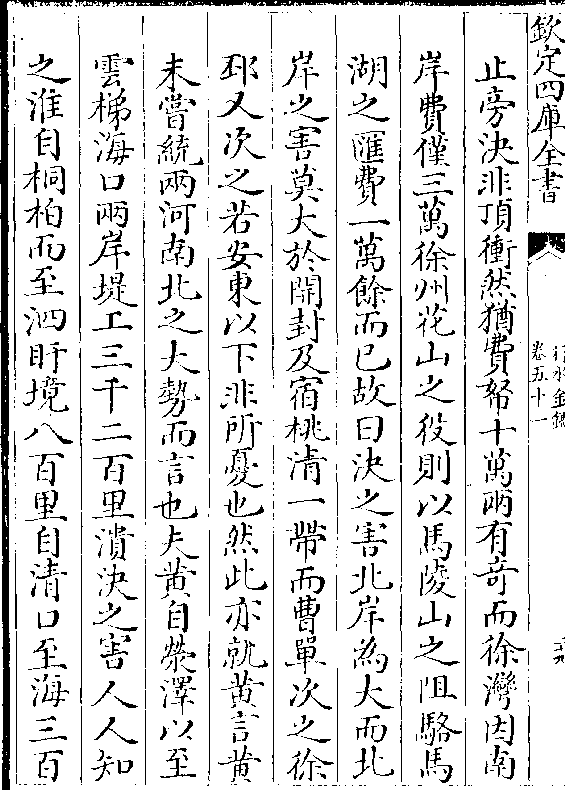 欽定四庫全書
行水金鑑
卷五十一
止旁決非頂衝然猶費帑十萬兩有奇而徐灣因南
岸費僅三萬徐州花山之役則以馬陵山之阻駱馬
湖之匯費一萬餘而已故曰決之害北岸為大而北
岸之害莫大於開封及宿桃清一帶而曹單次之徐
邳又次之若安東以下非所憂也然此亦就黄言黄
未嘗統兩河南北之大勢而言也夫黄自滎澤以至
雲梯海口兩岸堤工三千二百里潰決之害人人知
之淮自桐柏而至泗盱境八百里自清口至海三百